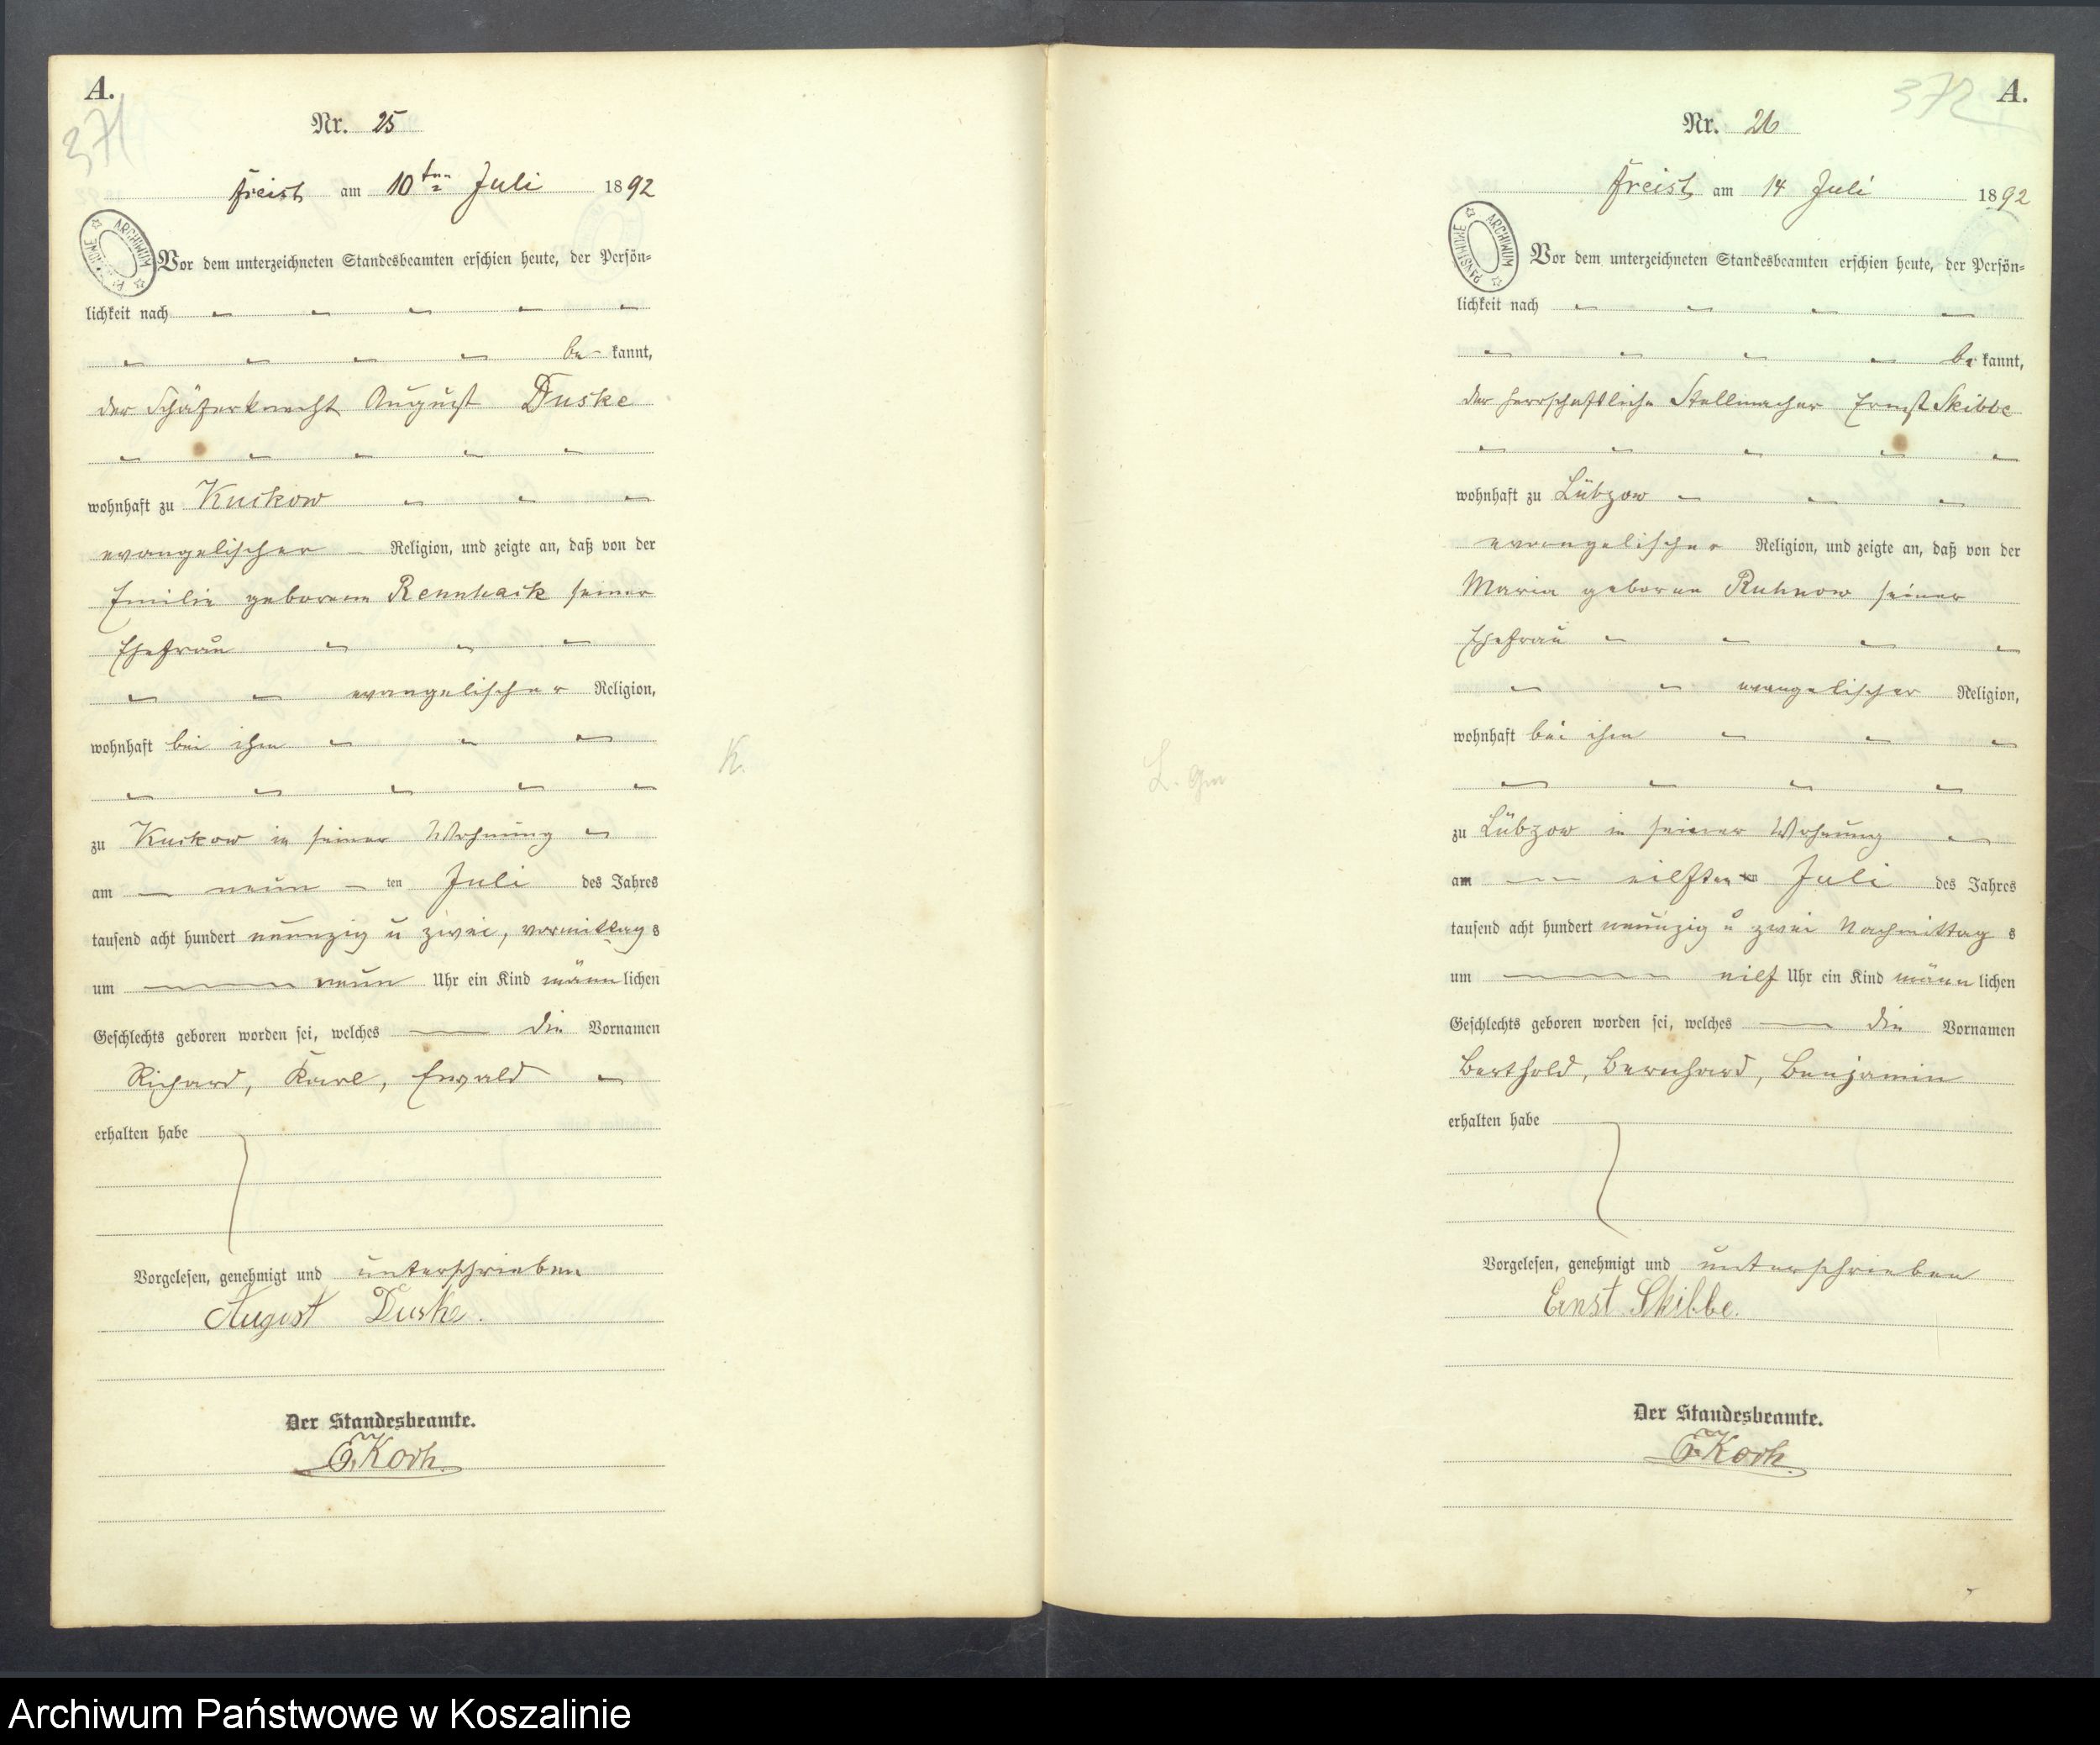 A.
371
Nr. 25
Freist am 10ten Juli 1892
Vor dem unterzeichneten Standesbeamten erschien heute, der Persön-
lichkeit nach
be- kannt,
der Schäferknecht August Duske
wohnhaft zu Kuckow
evangelischer Religion, und zeigte an, daß von der
Emilie geborenen Rennhack seiner
Ehefrau
evangelischer Religion,
wohnhaft bei ihm
zu Kuckow in seiner Wohnung
am neun ten Juli des Jahres
tausend acht hundert neunzig u zwei, vormittag s
um neun Uhr ein Kind männ lichen
Geschlechts geboren worden sei, welches die Vornamen
Richard, Karl, Ewald
erhalten habe
Vorgelesen, genehmigt und unterschrieben
August Duske.
Der Standesbeamte.
Koch.
K.
A.
372
Nr. 26
Freist am 14 Juli 1892
Vor dem unterzeichneten Standesbeamten erschien heute, der Persön-
lichkeit nach
be kannt,
der herrschaftliche Stellmacher Ernst Skibbe
wohnhaft zu Lübzow
evangelischer Religion, und zeigte an, daß von der
Maria geborne Ruhnow seiner
Ehefrau
evangelischer Religion,
wohnhaft bei ihm
zu Lübzow in seiner Wohnung
am eilften ten Juli des Jahres
tausend acht hundert neunzig u zwei Nachmittag s
um eilf Uhr ein Kind männ lichen
Geschlechts geboren worden sei, welches die Vornamen
Berthold, Bernhard, Benjamin
erhalten habe
Vorgelesen, genehmigt und unterschrieben
Ernst Skibbe.
Der Standesbeamte.
Koch.
L.
ARCHIWUM PAŃSTWOWE
Archiwum Państwowe w Koszalinie